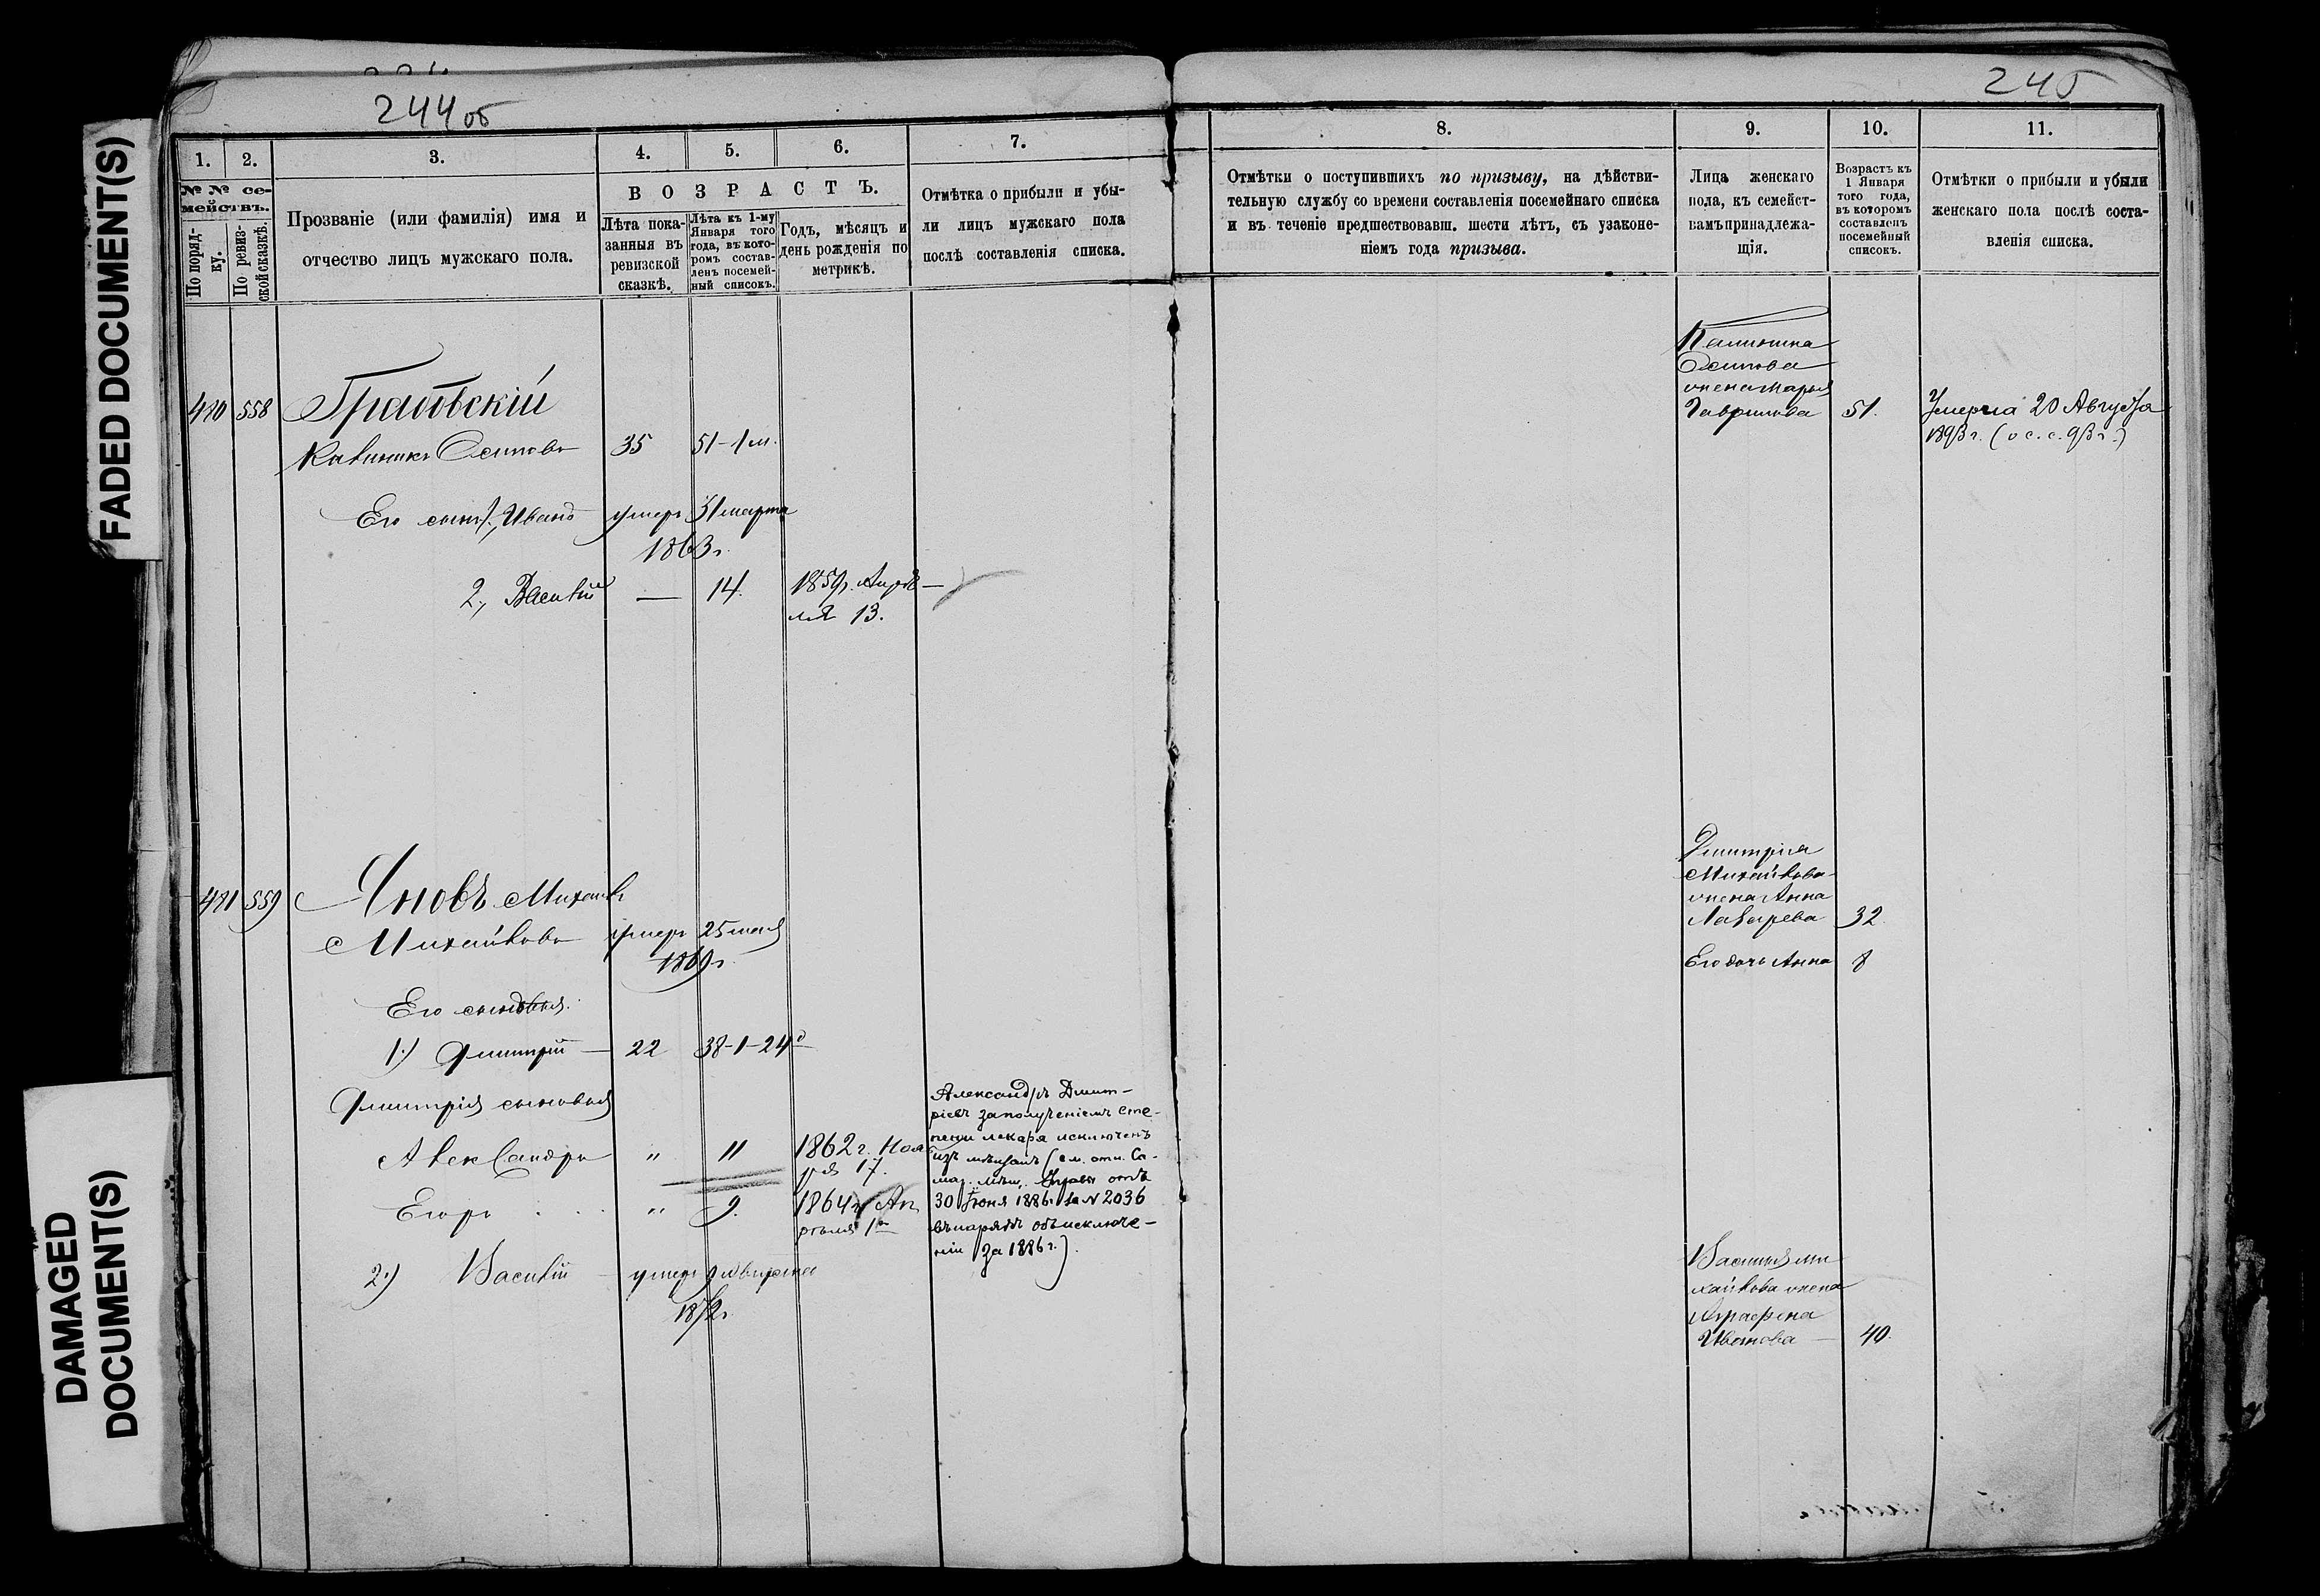 FADED DOCUMENT(S)
DAMAGED
DOCUMENT(S)
244об
1.
2.
3.
4.
5.
6.
7.
№ № се-
мействъ.
По поряд-
ку.
По ревиз-
ской сказкѣ.
Прозваніе (или фамилія) имя и
отчество лицъ мужскаго пола.
ВОЗРАСТЪ.
Лѣта пока-
занныя въ
ревизской
сказкѣ.
Лѣта къ 1-му
Января того
года, въ кото-
ромъ состав-
ленъ посемей-
ный списокъ.
Годъ, мѣсяцъ и
день рожденія по
метрикѣ.
Отмѣтка о прибыли и убы-
ли лицъ мужскаго пола
послѣ составленія списка.
480 558
Осиповъ 35 51-1м.
Его сын. 1, Иванъ умеръ 31 марта
1863г.
2, Василій — 14. 1859г. Апрѣ-
ля 13.
481 559 Яновъ Михаилъ
Михайловъ умеръ 25 мая
1869г.
Его сыновья:
1) Дмитрій — 22 38-1-24д
Дмитрія сыновья
Александръ „ „ 1862г. Ноя
бря 17.
Егоръ . . . „ 9. 1864г. Ап
рѣля 1го
2) Василій — умеръ
1872г.
Александръ Дмит-
ріевъ за полученіемъ сте-
пени лекаря исключенъ
изъ мѣщанъ (см. отн. Са-
мар. мѣщ. Управы отъ
30 Іюня 1886г. за N 2036
въ нарядѣ объ исключе-
ніи за 1886г.).
245
8.
9.
10.
11.
Отмѣтки о поступившихъ по призыву, на дѣйстви-
тельную службу со времени составленія посемейнаго списка
и въ теченіе предшествовавш. шести лѣтъ, съ узаконе-
ніемъ года призыва.
Лица женскаго
пола, къ семейст-
вамъ принадлежа-
щія.
Возрастъ къ
1 Января
того года,
въ которомъ
составленъ
посемейный
списокъ.
Отмѣтки о прибыли и убыли
женскаго пола послѣ соста-
вленія списка.
Осипова
жена Марья
Гаврилова 51.
Умерла 20 Августа
1893г. (о с. с. 93г.)
Дмитрія
Михайлова
жена Анна
Лазарева 32
Его дочь Анна 8
Василья Ми
хайлова жена
Аграфена
Иванова — 40.